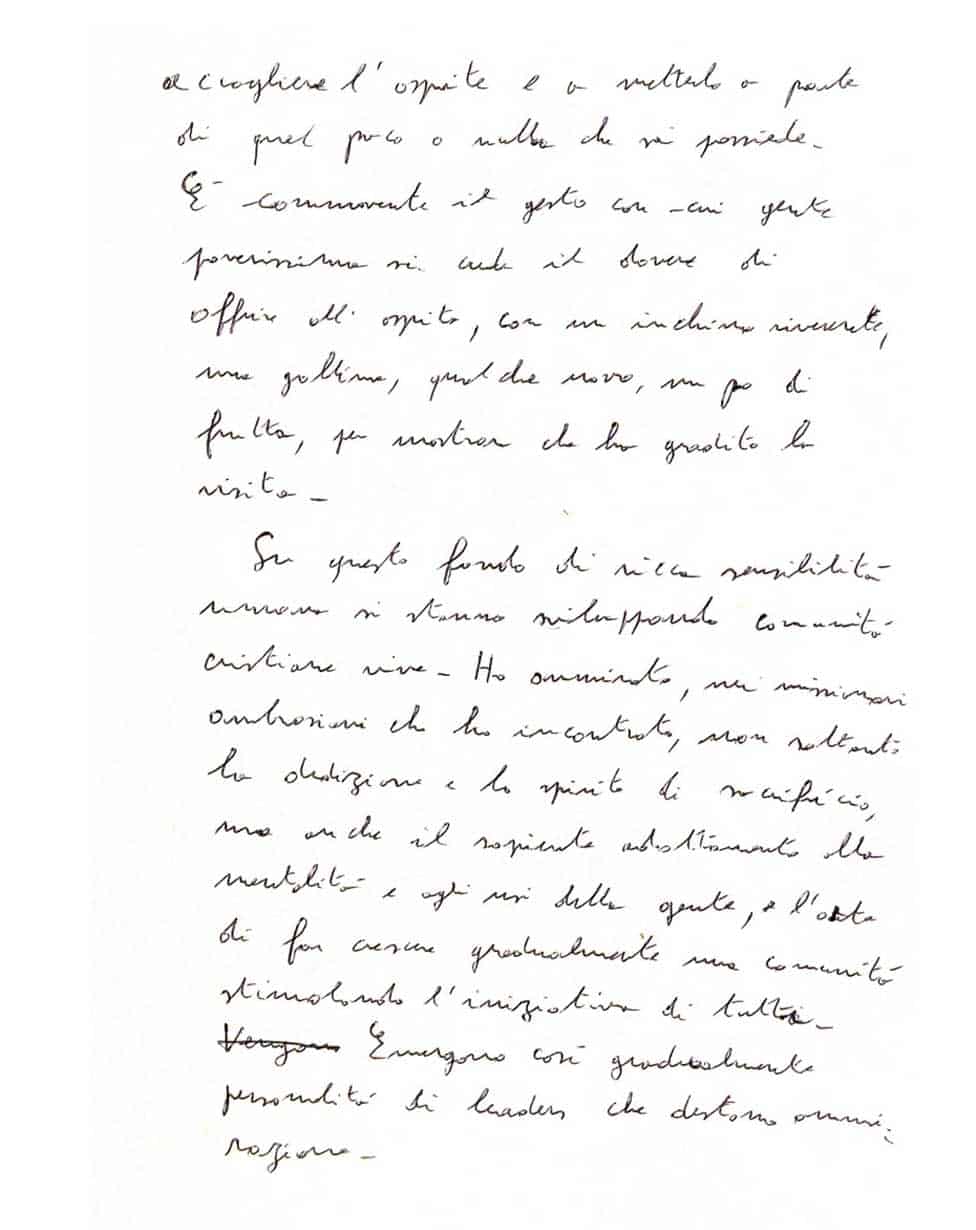 accogliere l'ospite e a metterlo a parte
di quel poco o nulla che si possiede.
E' commovente il gesto con cui gente
poverissima si crede il dovere di
offrire all'ospite, con un inchino riverente,
una gallina, qualche uovo, un po di
frutta, per mostrare che ha gradito la
visita.
Su questo fondo di ricca sensibilità
umana si stanno sviluppando comunità
cristiane vive. Ho ammirato, nei missionari
ambrosiani che ho incontrato, non soltanto
la dedizione e lo spirito di sacrificio,
ma anche il sapiente adattamento alla
mentalità e agli usi della gente, e l'arte
di far crescere gradualmente una comunità
stimolando l'iniziativa di tutti.
Vengono Emergono così gradualmente
personalità di leaders che destano ammi-
razione.